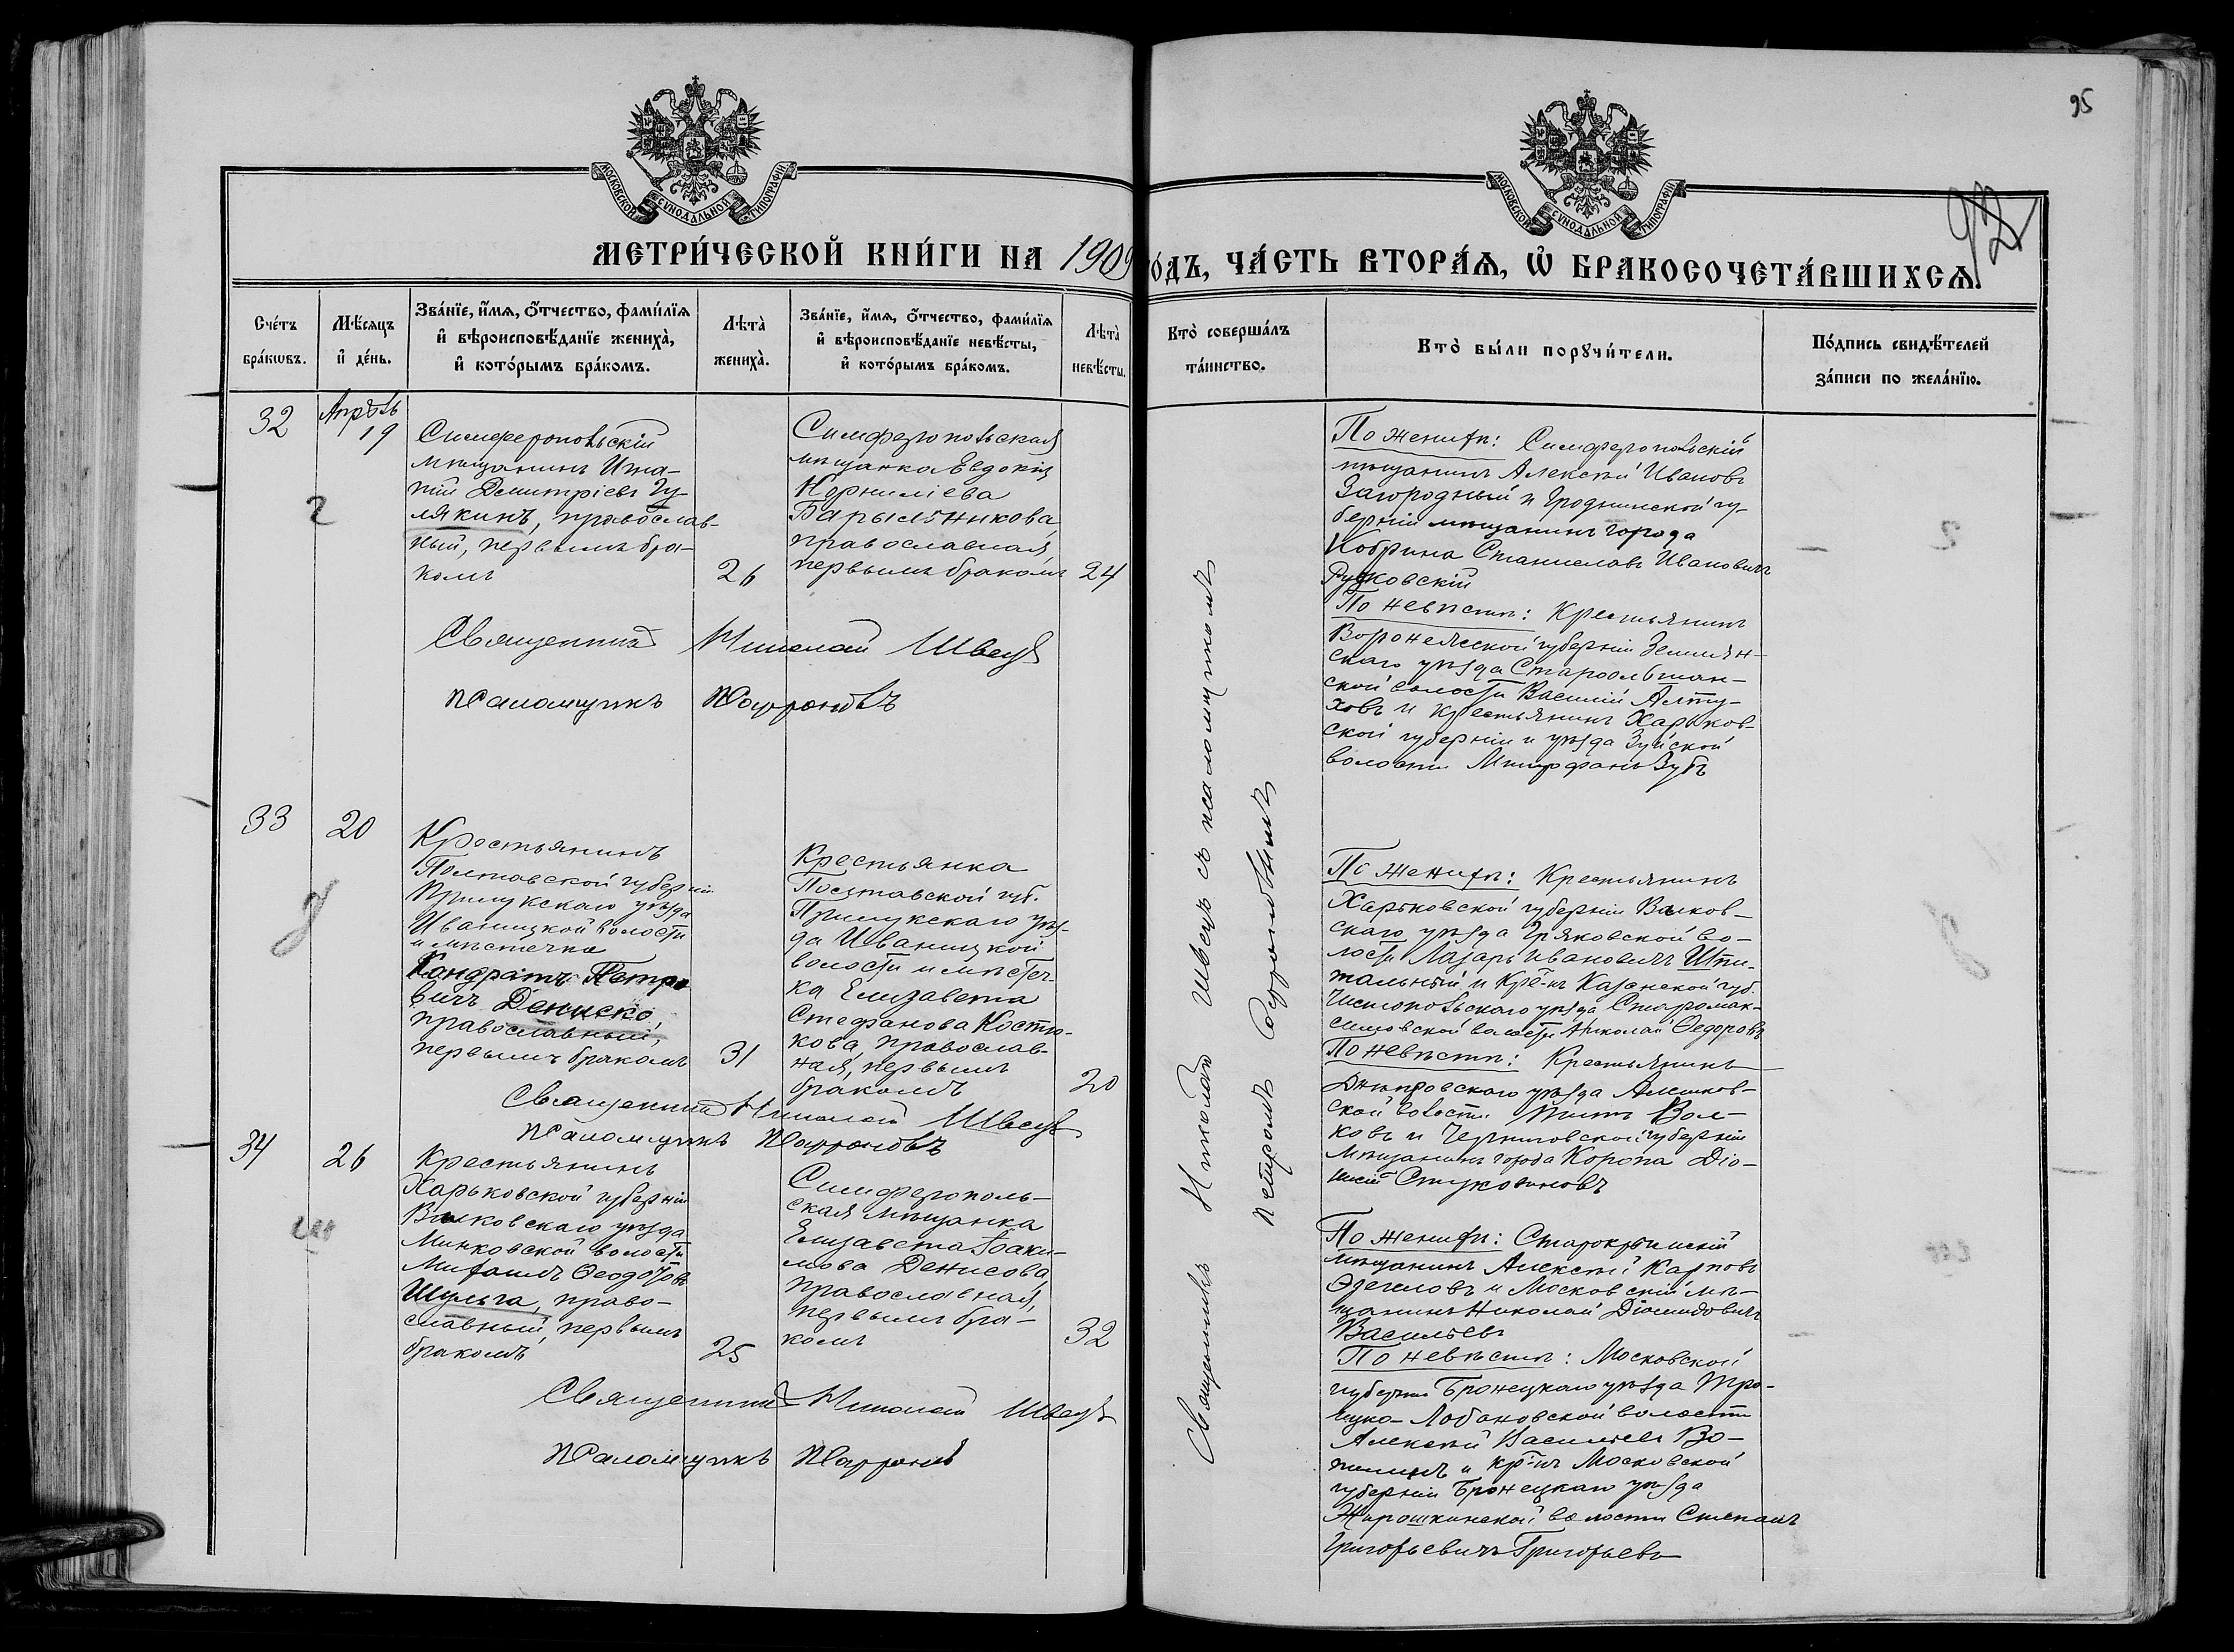 95
92
МОСКОВСКОЙ СѴНОДАЛЬНОЙ ТИПОГРАФІИ
МОСКОВСКОЙ СѴНОДАЛЬНОЙ ТИПОГРАФІИ
МЕТРИ́ЧЕСКОЙ КНИ́ГИ НА 1909
О́ДЪ, ЧА́СТЬ ВТОРА́Ѧ, Ѡ БРАКОСОЧЕТА́ВШИХСѦ.
Сче́тъ бра́кѡвъ.
Мѣ́сяцъ и де́нь.
Зва́нїе, и́мѧ, ѻ́тчество, фами́лїѧ
и вѣроисповѣ́данїе жениха̀,
и кото́рымъ бра́комъ.
Лѣта̀ жениха̀.
Зва́нїе, и́мѧ, ѻ́тчество, фами́лїѧ
и вѣроисповѣ́данїе невѣ́сты,
и кото́рымъ бра́комъ.
Лѣта̀ невѣ́сты.
Кто̀ соверша́лъ та́инство.
Кто̀ бы́ли порꙋчи́тели.
По́дпись свидѣ́телей
за́писи по жела́нїю.
32
Апрѣль
19
Симферопольскій
мѣщанинъ Ипа-
тій Димитріевъ Гу-
лякинъ, православ-
ный, первымъ бра-
комъ
26
Симферопольская
мѣщанка Евдокія
Корниліева
Барыльникова
православная,
первымъ бракомъ
24
Священникъ Николай Швецъ
Псаломщикъ
По женихѣ: Симферопольскій
мѣщанинъ Алексѣй Ивановъ
Загородный и Гродненской гу-
берніи мѣщанинъ города
Кобрина Станиславъ Ивановичъ
По невѣстѣ: Крестьянинъ
Воронежской губерніи Землян-
скаго уѣзда Старо
ской волости Василій Алту-
ховъ и крестьянинъ Харьков-
ской губерніи и уѣзда Зуйской
волости Митрофанъ Зубъ
33
20
Крестьянинъ
Полтавской губерніи
Прилукскаго уѣзда
Иваницкой волости
и мѣстечка
Кондратъ Петро
вичъ Дениско,
православный,
первымъ бракомъ
31
Крестьянка
Полтавской губ.
Прилукскаго уѣз-
да Иваницкой
волости и мѣстеч-
ка Елизавета
Стефанова Костю-
кова, православ-
ная, первымъ
бракомъ
20
Священникъ Николай Швецъ
Псаломщикъ
По женихѣ: Крестьянинъ
Харьковской губерніи Валков-
скаго уѣзда во-
лости Лазарь Ивановичъ Шпи-
тальный и Кре-нъ Казанской губ.
Чистопольскаго уѣзда Старомак-
симовской волости Николай Ѳедоровъ
По невѣстѣ: Крестьянинъ
Днѣпровскаго уѣзда Алешков-
ской волости Титъ Вол-
ковъ и Черниговской губерніи
мѣщанинъ города Коропа Діо-
нисій
34
26
Крестьянинъ
Харьковской губерніи
Валковскаго уѣзда
Минковской волости
Михаилъ Ѳеодотовъ
Шульга, право-
славный, первымъ
бракомъ
25
Симферополь-
ская мѣщанка
Елизавета Іоаки-
мова Денисова,
православная,
первымъ бра-
комъ
32
Священникъ Николай Швецъ
Псаломщикъ
По женихѣ: Старокрымскій
мѣщанинъ Алексѣй Карповъ
и Московскій мѣ-
щанинъ Николай Діомидовичъ
Васильевъ
По невѣстѣ: Московской
губерніи Бронецкаго уѣзда Тро-
ицко-Лобановской волости
Алексѣй Васильевъ
и кр-нъ Московской
губерніи Бронецкаго уѣзда
Жирошкинской волости Степанъ
Григорьевичъ Григорьевъ
Священникъ Николай Швецъ съ псаломщикомъ
Петромъ